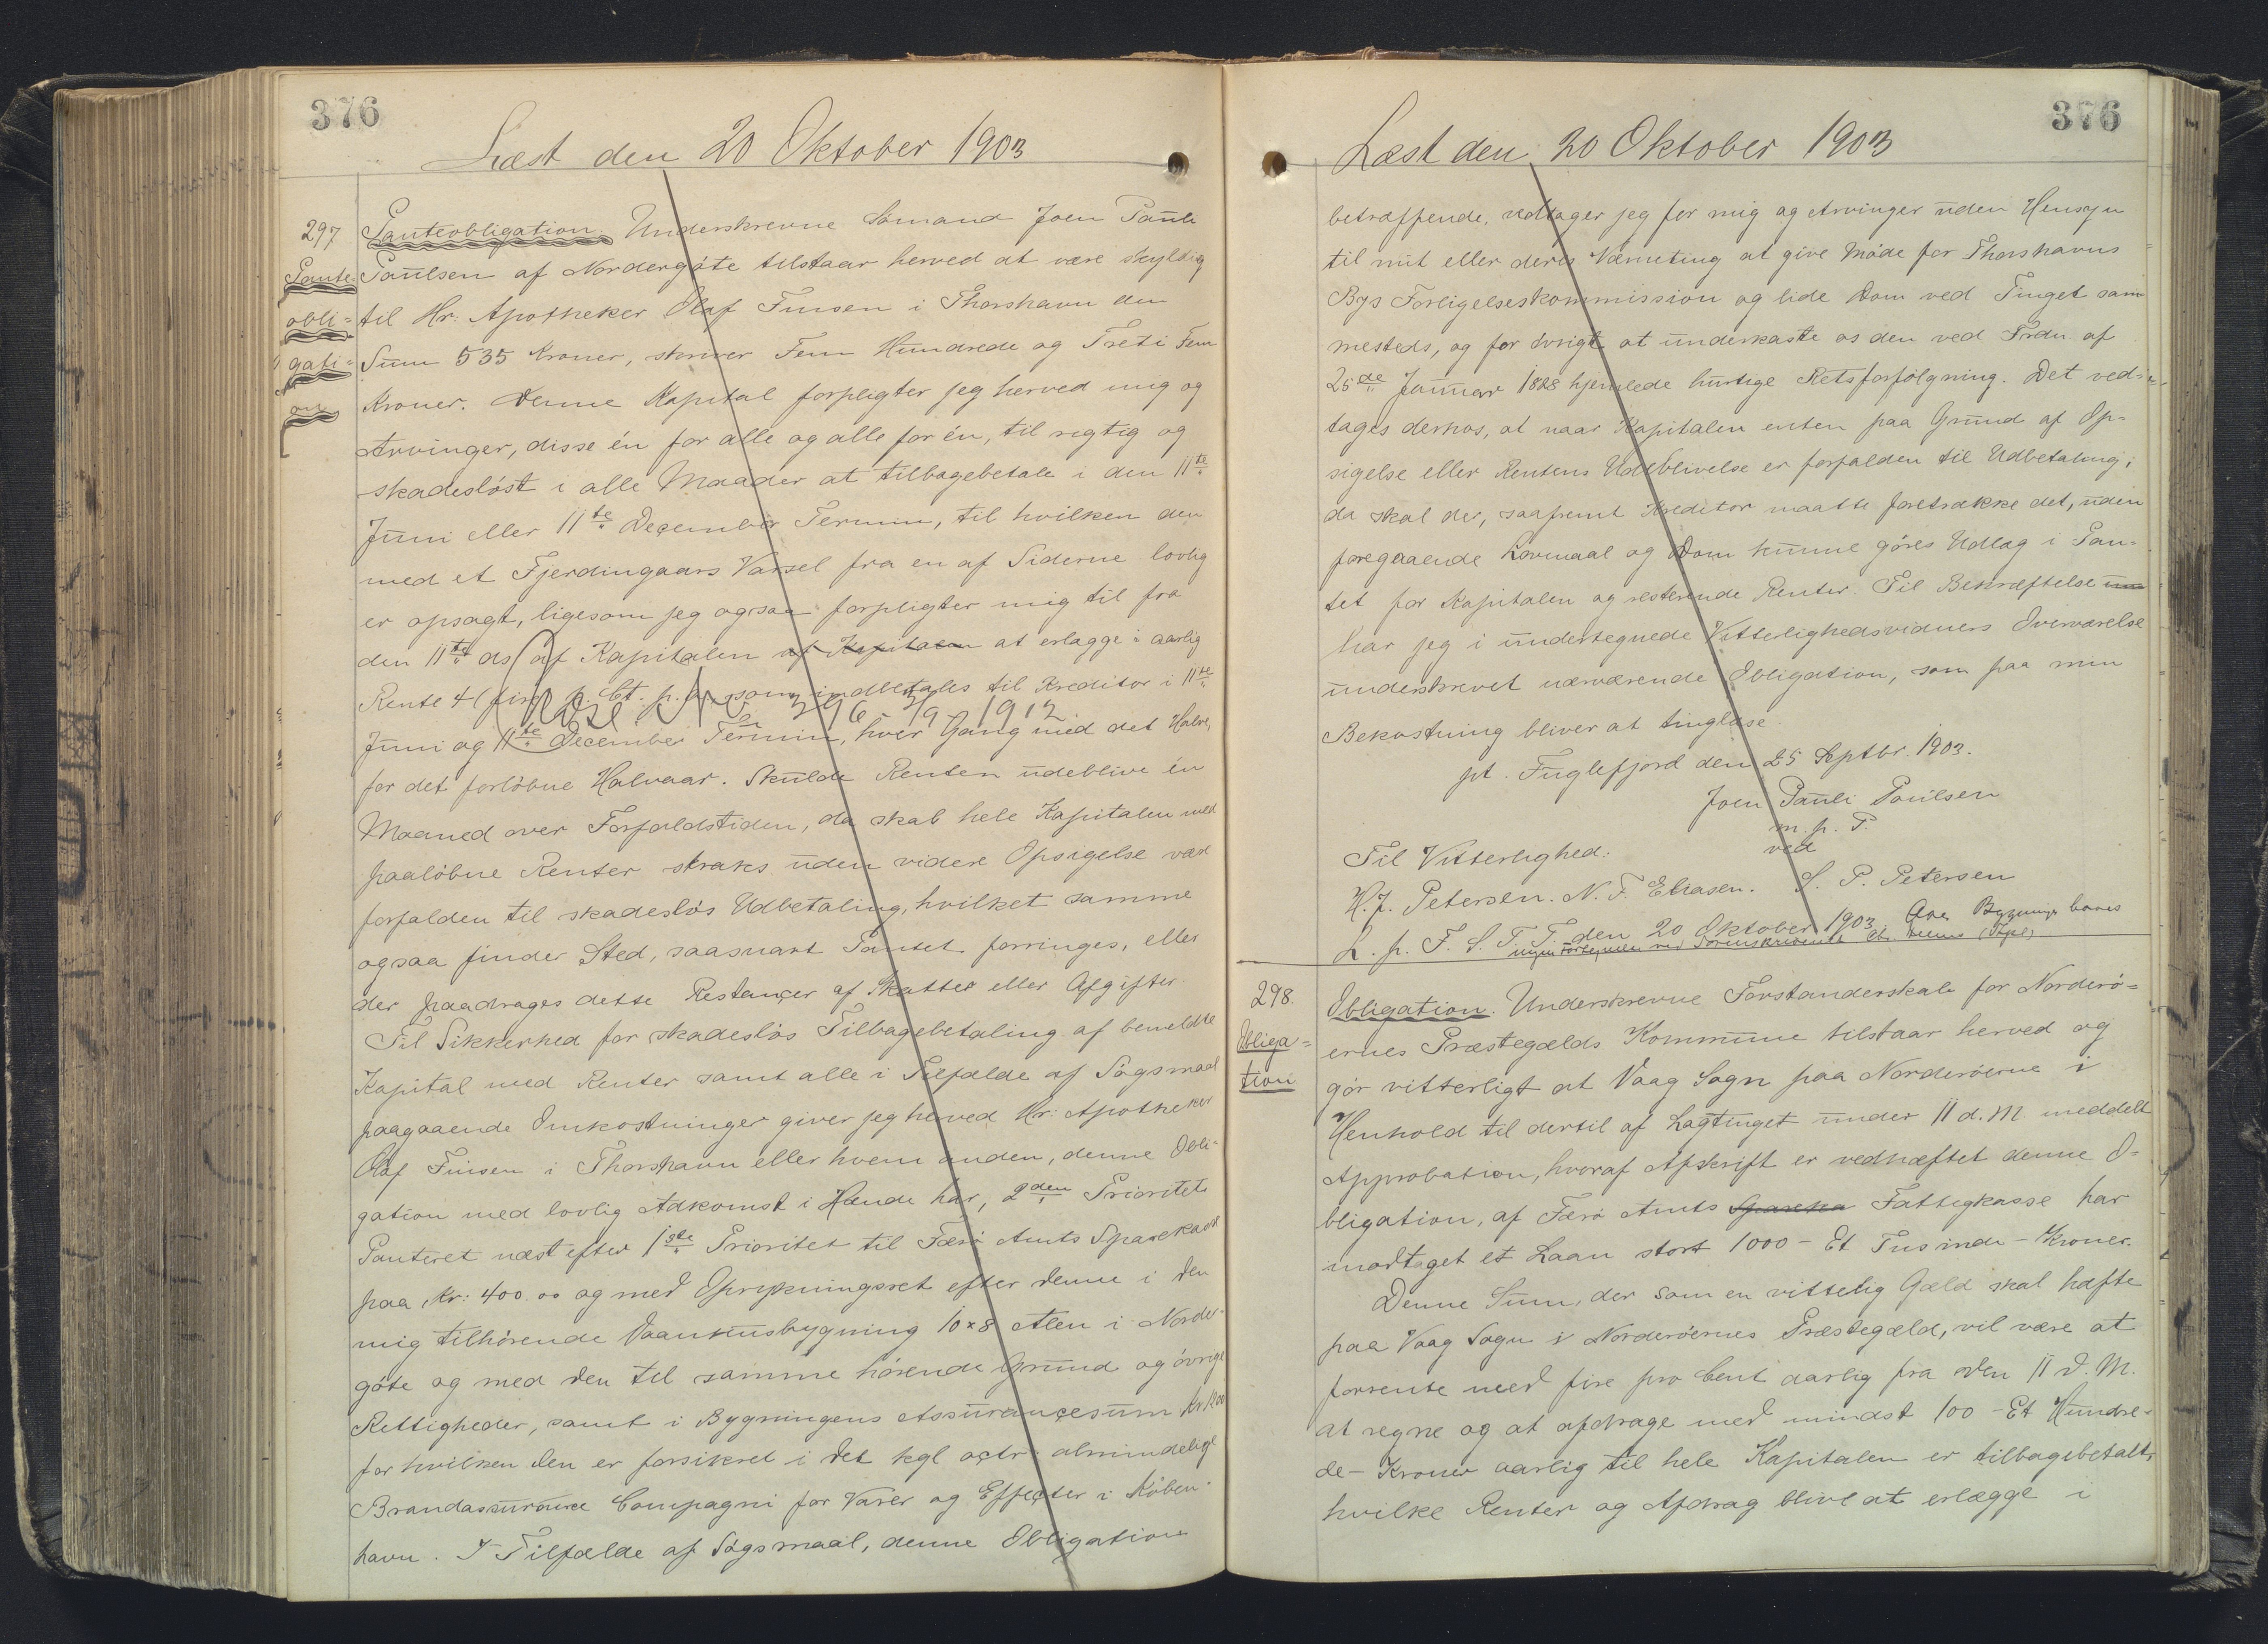 376
Læst den 20 Oktober 1903
297
Pante-
obli-
gati-
on
Panteobligation. Underskrevne Sømand Joen Pauli
Paulsen af Nordergøte tilstaar herved at være skyldig
til Hr. Apotheker Olaf Finsen i Thorshavn den
Sum 535 Kroner, skriver Fem Hundrede og Treti Fem
Kroner. Denne Kapital forpligter jeg herved mig og
Arvinger, disse én for alle og alle for én, til rigtig og
skadesløst i alle Maader at tilbagebetale i den 11te
Juni eller 11te December Termin, til hvilken den
med et Fjerdingaars Varsel fra en af Siderne lovlig
er opsagt, ligesom jeg ogsaa forpligter mig til fra
den 11te ds af Kapitalen af Kapitalen at erlægge i aarlig
Rente 4 (fire) p. Ct. p. a. som indbetales til Kreditor i 11te
Juni og 11te December Termin, hver Gang med det Halve,
for det forløbne Halvaar. Skulde Renten udeblive én
Maaned over Forfaldstiden, da skal hele Kapitalen med
paaløbne Renter straks uden videre Opsigelse være
forfalden til skadesløs Udbetaling, hvilket samme
ogsaa finder Sted, saasnart Pantet forringes, eller
der paadrages dette Restancer af Skatter eller Afgifter.
Til Sikkerhed for skadesløs Tilbagebetaling af bemeldte
Kapital med Renter samt alle i Tilfælde af Søgsmaal
paagaaende Omkostninger giver jeg herved Hr. Apotheker
Olaf Finsen i Thorshavn eller hvem anden, denne Obli-
gation med lovlig Adkomst i Hænde har, 2den Prioritets
Panteret næst efter 1ste Prioritet til Færø Amts Sparekasse
paa Kr: 400.00 og med Oprykningsret efter denne i den
mig tilhørende Vaanhusbygning 10 × 8 Alen i Norder-
gøte og med den til samme hørende Grund og øvrige
Rettigheder, samt i Bygningens Assurancesum Kr
for hvilken den er forsikret i det kgl octr. almindelige
Brandassurance Compagni for Varer og Effecter i Køben-
havn. I Tilfælde af Søgsmaal, denne Obligation
376
Læst den 20 Oktober 1903
betræffende, vedtager jeg for mig og Arvinger uden Hensyn
til mit eller deres Værneting at give Møde for Thorshavns
Bys Forligelseskommission og lide Dom ved Tinget sam-
mesteds, og for øvrigt at underkaste os den ved Frdn. af
25de Januar 1828 hjemlede hurtige Retsforfølgning. Det ved-
tages derhos, at naar Kapitalen enten paa Grund af Op-
sigelse eller Rentens Udeblivelse er forfalden til Udbetaling,
da skal der, saafremt Kreditor maatte foretrække det, uden
foregaaende Lovmaal og Dom kunne gøres Udlæg i Pan-
tet for Kapitalen og resterende Renter. Til Bekræftelse
har jeg i undertegnede Vitterlighedsvidners Overværelse
underskrevet nærværende Obligation, som paa min
Bekostning bliver at tinglæse.
pt. Fuglefjord den 25 Septbr. 1903.
Joen Pauli Poulsen
m. p. P.
ved
Til Vitterlighed:
H. J. Petersen. N. F. Eliasen. S. P. Petersen
L. p. F. S. T. T. den 20 Oktober 1903.
298.
Obliga-
tion
Obligation. Underskrevne Forstanderskab for Norderø-
ernes Præstegælds Kommune tilstaar herved og
gør vitterligt at Vaag Sogn paa Norderøerne i
Henhold til dertil af Lagtinget under 11 d. M. meddelt
Approbation, hvoraf Afskrift er vedhæftet denne O-
bligation, af Færø Amts Fattigkasse har
modtaget et Laan stort 1000 - Et Tusinde - Kroner.
Denne Sum, der som en vitterlig Gæld skal hæfte
paa Vaag Sogn i Norderøernes Præstegæld, vil være at
forrente med fire pro Cent aarlig fra den 11 d. M.
at regne og at afdrage med mindst 100 - Et Hundre-
de - Kroner aarlig til hele Kapitalen er tilbagebetalt,
hvilke Renter og Afdrag blive at erlægge i